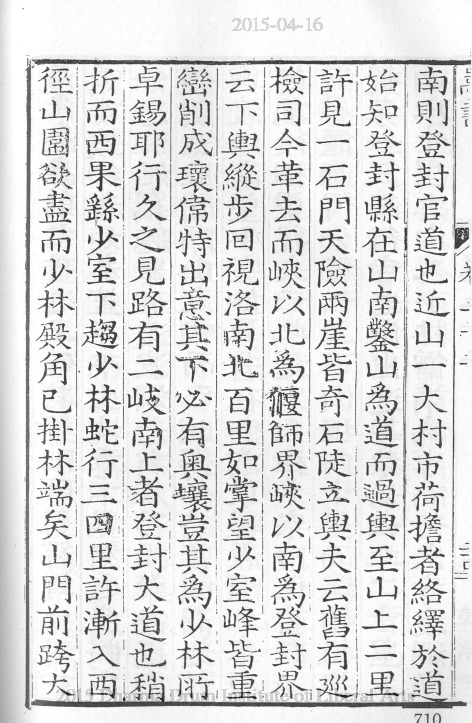 2015-04-16
南則登封官道也近山一大村市荷擔者絡繹於道
始知登封縣在山南鑿山為道而過輿至山上二里
許見一石門天險兩崖皆奇石陡立輿夫云舊有巡
檢司今革去而峽以北為偃師界峽以南為登封界
云下輿縱步回視洛南北百里如掌望少室峰皆重
巒削成瓌偉特出意其下必有奧壤豈其為少林所
卓錫耶行久之見路有二岐南上者登封大道也稍
折而西果繇少室下趨少林蛇行三四里許漸入西
徑山圍欲盡而少林殿角已掛林端矣山門前跨大
710